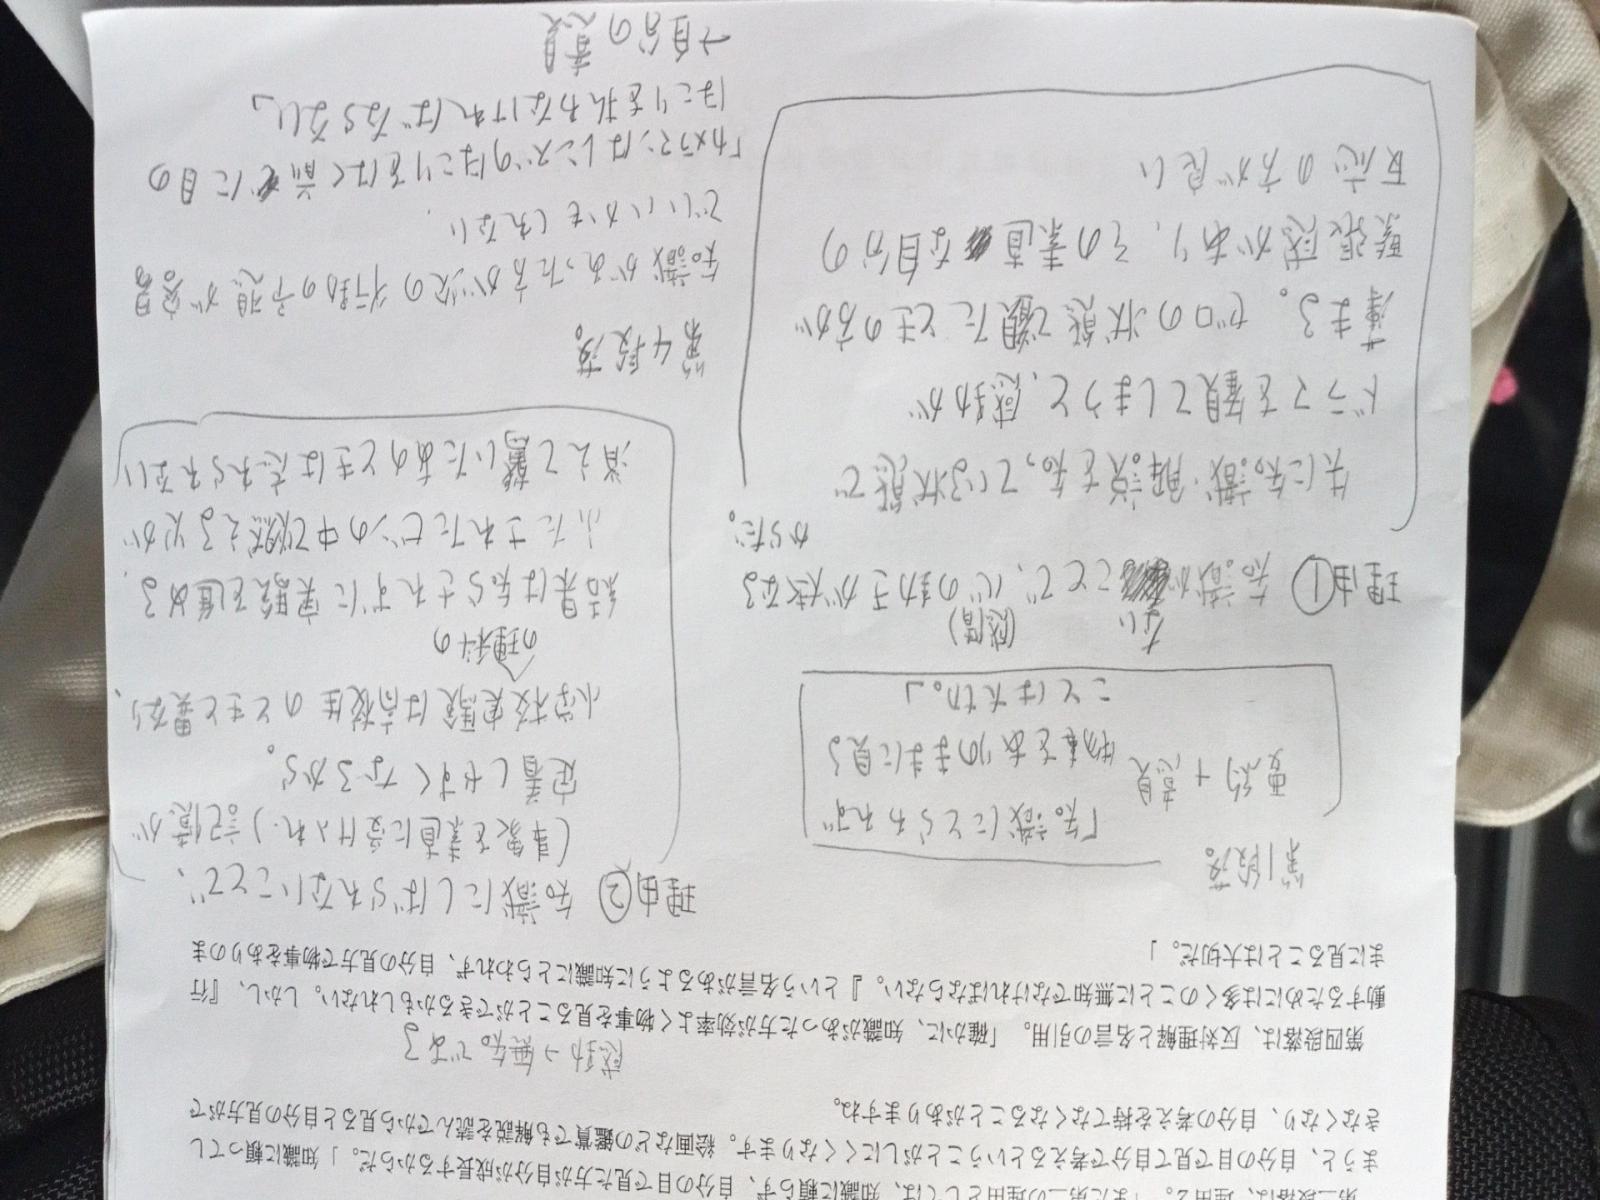 第三段落は、理由2。「また第二の理由としては、知識に頼らず、自分の目で見た方が自分が成長するからだ。」知識に頼ってし
まうと、自分の目で見て自分で考えるということがしにくくなります。絵画などの鑑賞でも解説を読んでから見ると自分の見方がで
きなくなり、自分の考えを持てなくなることがありますね。
感動→無知であ3
第四段落は、反対理解と名言の引用。「確かに、知識があった方が効率よく物事を見ることができるかもしれない。しかし、『行
動するためには多くのことに無知でなければならない。』という名言があるように知識にとらわれず、自分の見方で物事をありのま
まに見ることは大切だ。」
第1段落。
要約+意見
「知識にとらわれず
物事をありのままに見る
ことは大切。」
理由① 知識がないことで、心の動きが大きくなる
(感情)
からだ。
先に知識・解説を知っている状態で
ドラマを観てしまうと、感動が
薄まる。ゼロの状態で観たときの方が
緊張感があり、その素直な自分の
反応の方が良い
理由② 知識にしばられないことで、
(事象を素直に受け入れ)記憶が
定着しやすくなるから。
小学校の理科の実験は高校生のときと異なり、
結果は知らされずに実験を進める
ふたされたビンの中で燃える火が
消えて驚いたあのときは忘れられない
第4段落。
知識があった方が次の行動の予想が容易
でいいかもしれない
「カメラマンはレンズのほこりをはく前に目の
ほこりを払わなければならない」
→自分の意見